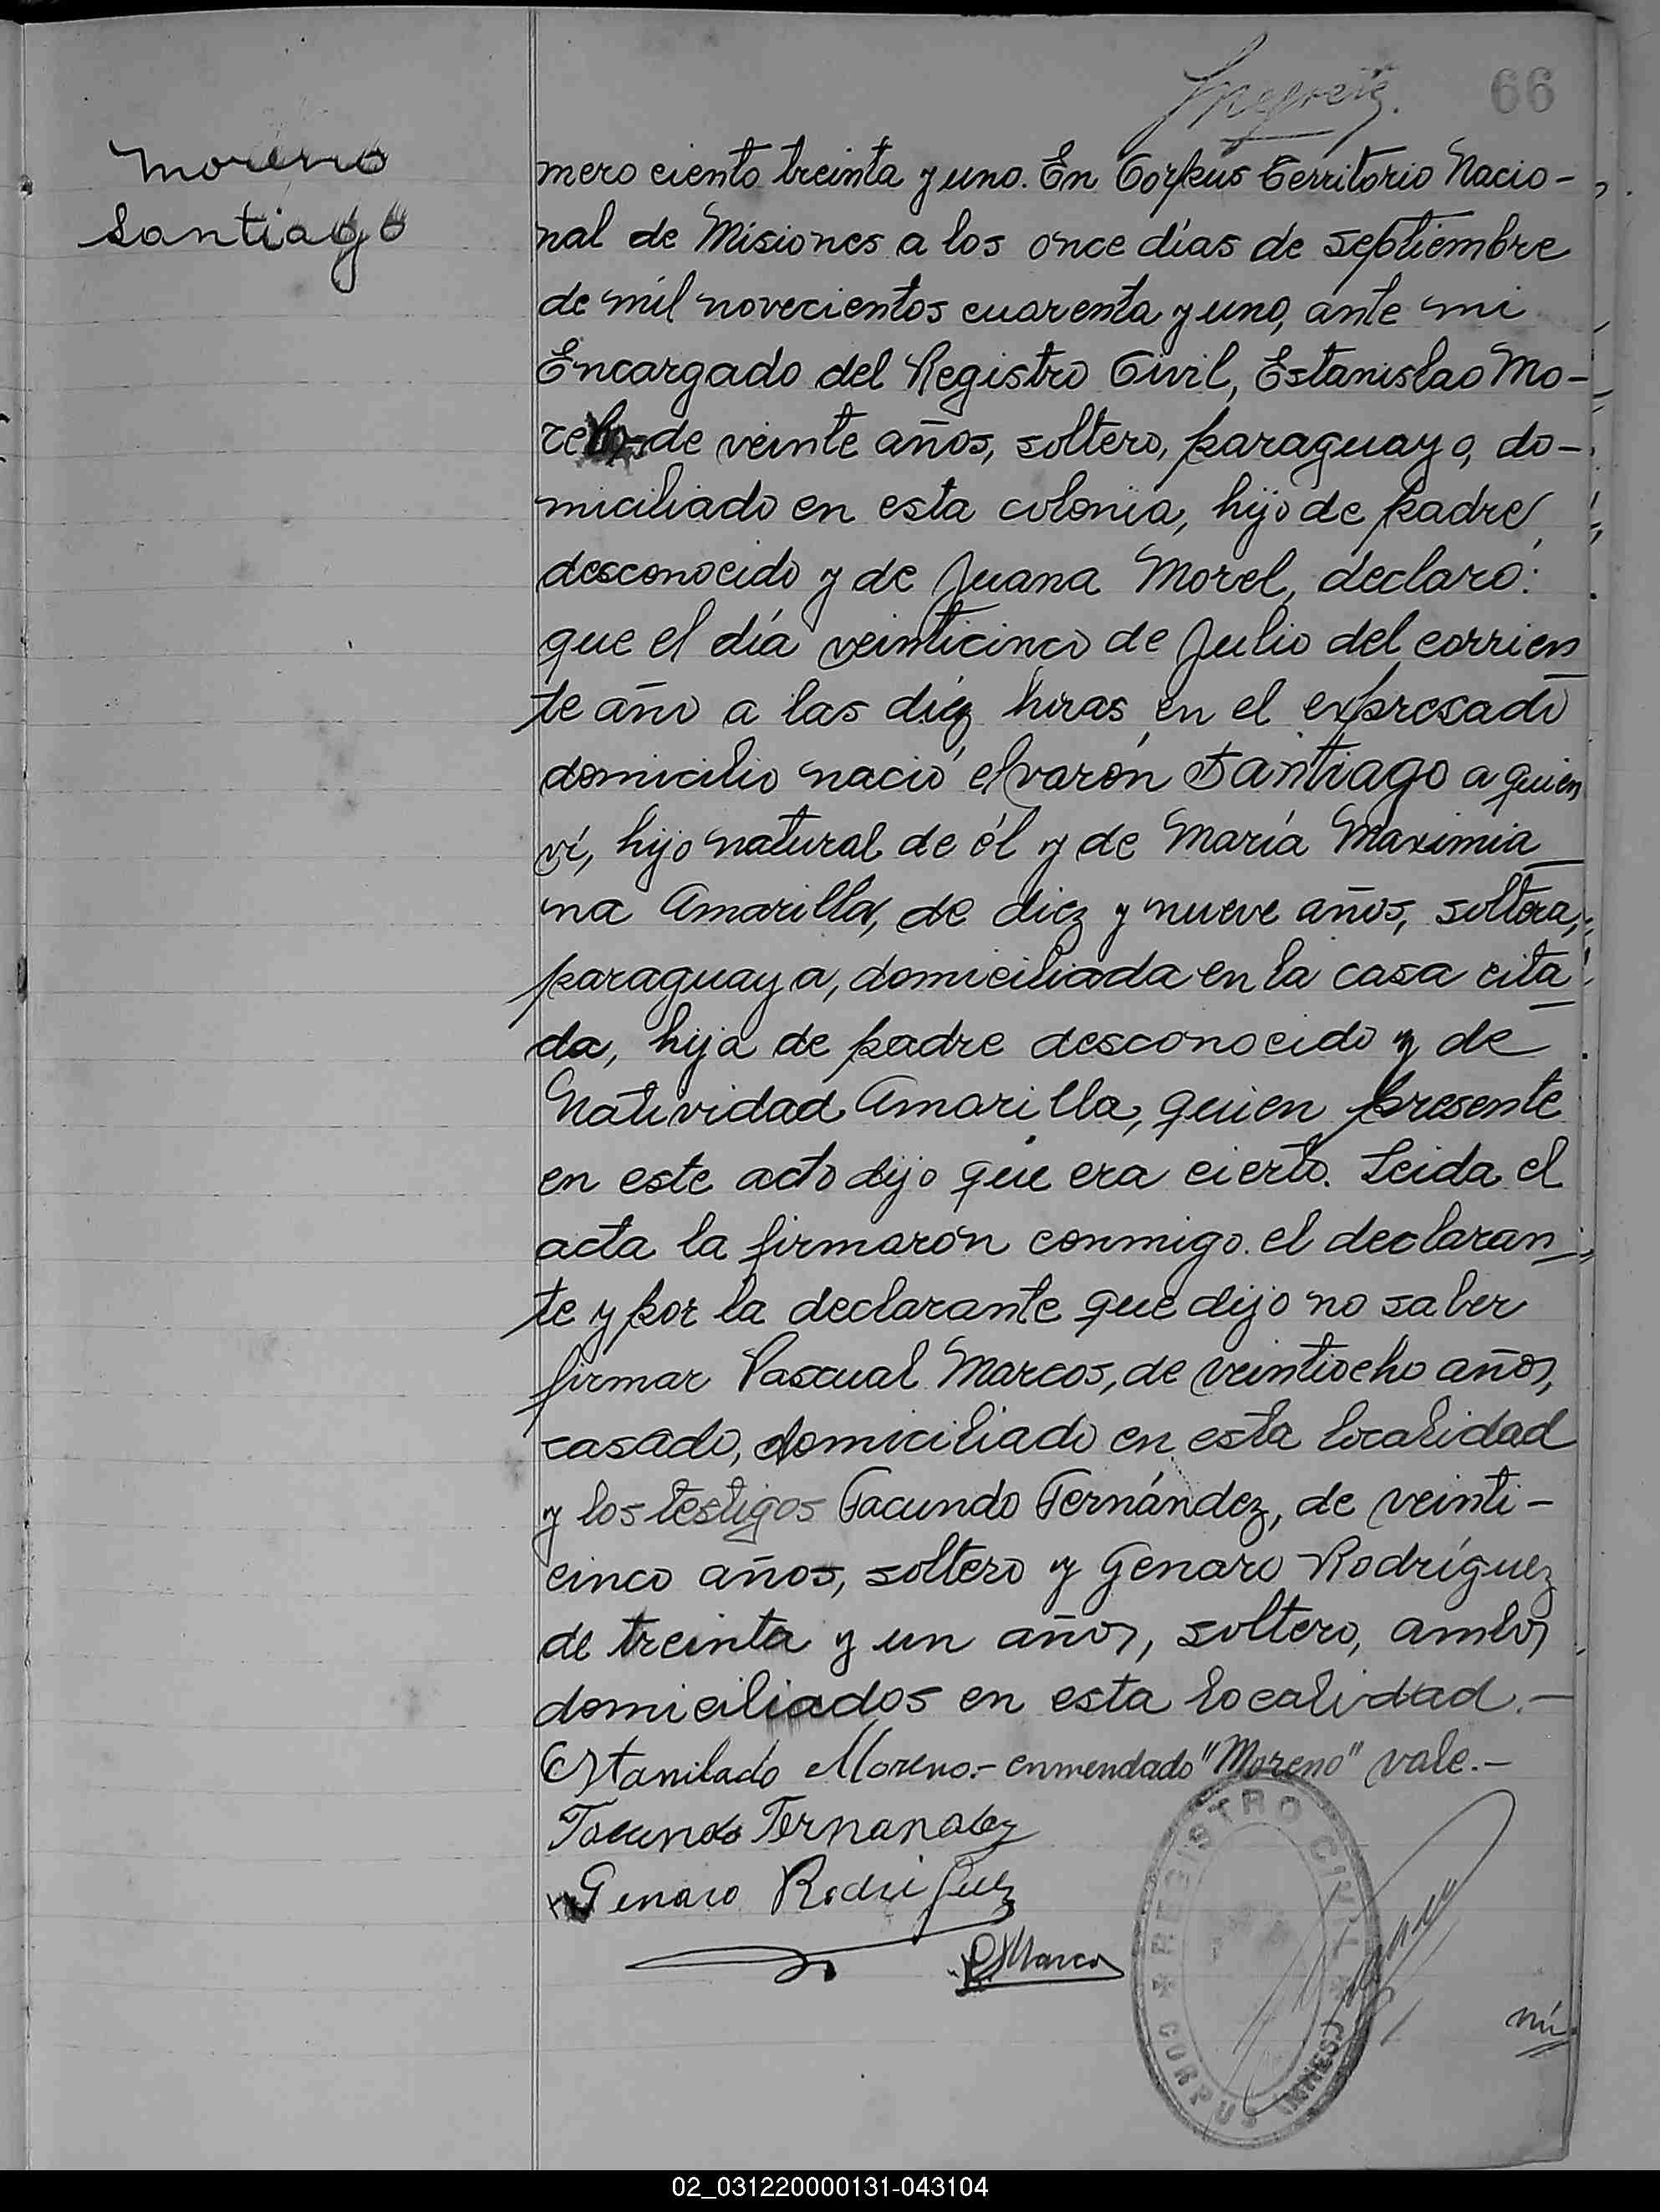 66
Moreno
Santiago
mero ciento treinta y uno. En Corpus Territorio Nacio-
nal de Misiones a los once días de septiembre
de mil novecientos cuarenta y uno, ante mi
Encargado del Registro Civil, Estanislao Mo-
de veinte años, soltero, paraguayo, do-
miciliado en esta colonia, hijo de padre
desconocido y de Juana Morel, declaró:
que el día veinticinco de Julio del corrien
te año a las diez horas en el expresado
domicilio nació el varón Santiago a quien
ví, hijo natural de él y de María Maximia
na Amarilla, de diez y nueve años, soltera,
paraguaya, domiciliada en la casa cita
da, hija de padre desconocido y de
Natividad Amarilla, quien presente
en este acto dijo que era cierto. Leida el
acta la firmarón conmigo el declaran
te y por la declarante que dijo no saber
firmar Pascual Marcos, de veintiocho años,
casado, domiciliado en esta localidad
y los testigos Facundo Fernández, de veinti-
cinco años, soltero y Genaro Rodríguez
de treinta y un años, soltero, ambos
domiciliados en esta localidad.-
Estanilado Moreno.- enmendado "Moreno" vale.-
Facundo Fernandez
Genaro Rodriguez
P Marcos
REGISTRO CIVIL
CORPUS (MNES)
nú
02_031220000131-043104